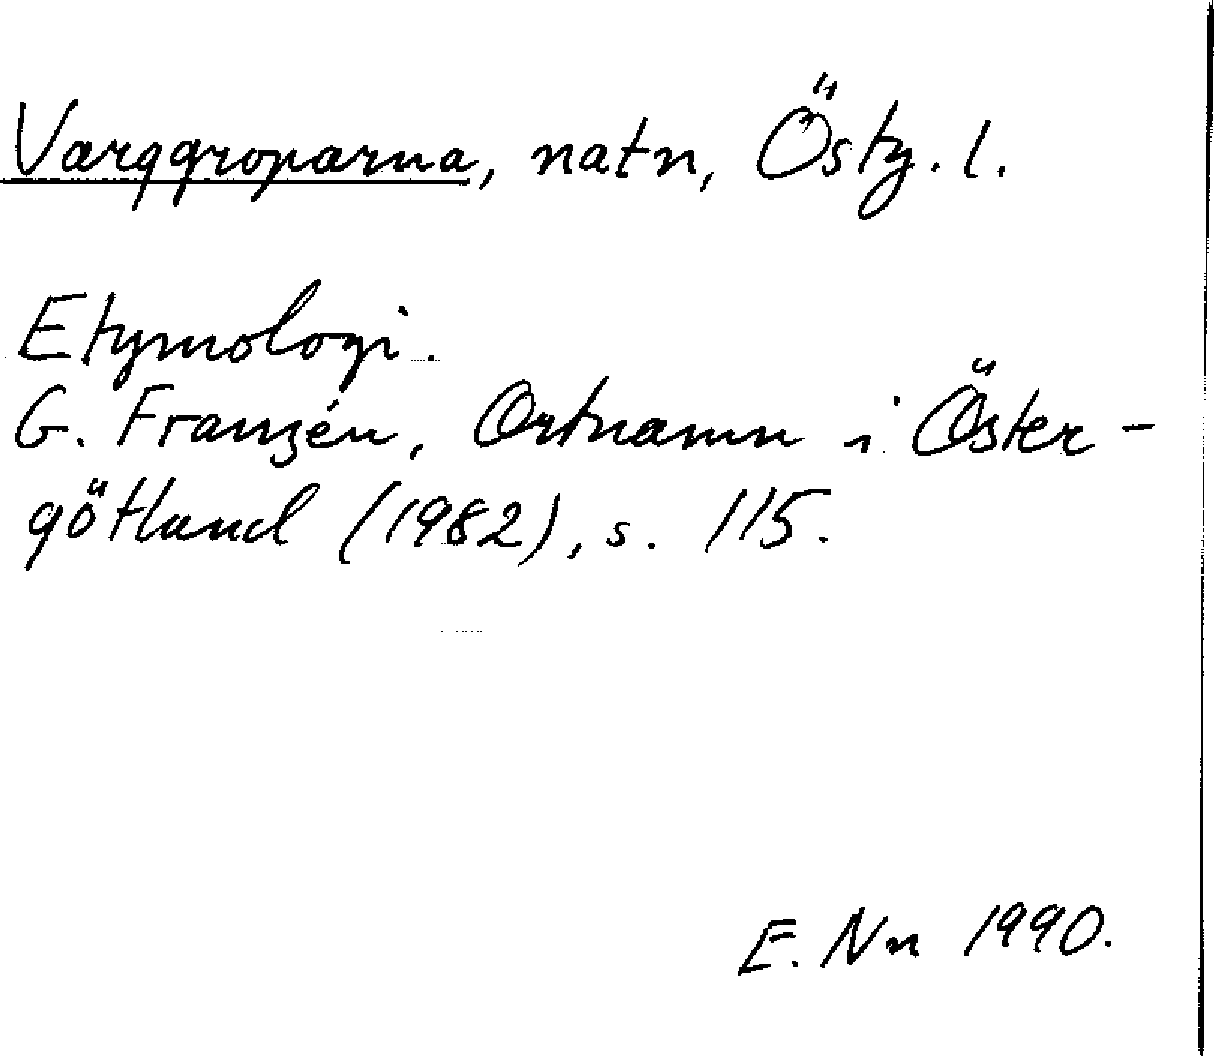 Varggroparna, natn, Östg. l.
Etymologi.
G. Franzén, Ortnamn i Öster-
götland (1982), s. 115.
E. Nn 1990.